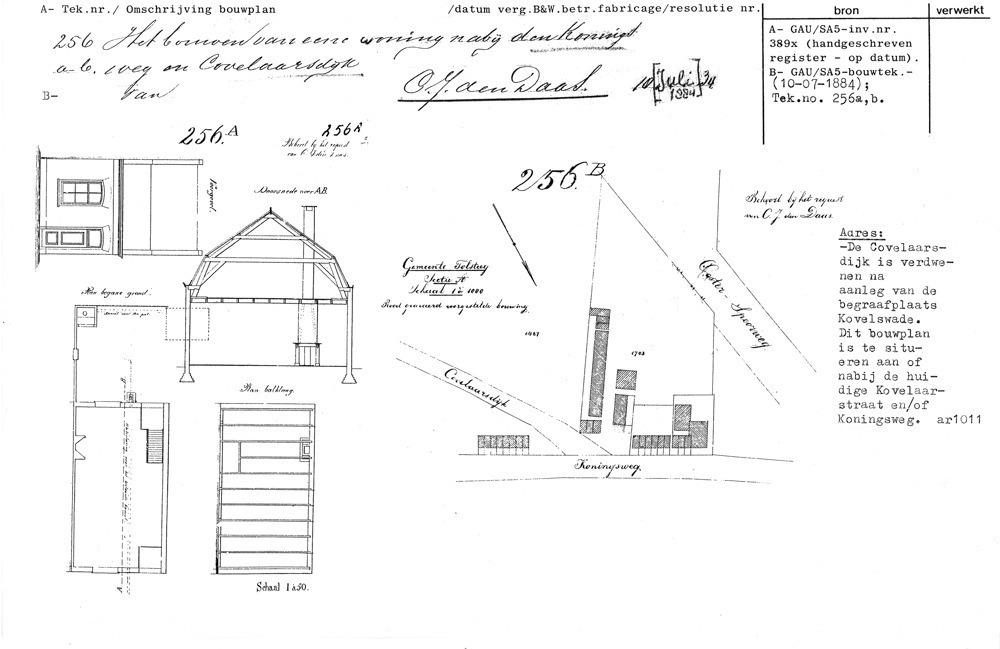 A- Tek.nr./ Omschrijving bouwplan /datum verg.B&W.betr.fabricage/resolutie nr.
bron verwerkt
256 Het bouwen van eene woning nabij den Konings
a-b. weg en Covelaarsdyk
B- van C. J. den Daas. 10 Juli 34
1884
A- GAU/SA5-inv.nr.
389x (handgeschreven
register - op datum).
B- GAU/SA5-bouwtek.-
(10-07-1884);
Tek.no. 256a,b.
256.A
256A
Behoort bij het request
van C. J. den Daas.
Voorgevel.
Doorsnede over A.B.
Plan begane grond.
Plan balklaag.
B.
A.
Schaal 1 à 50.
256.B
Behoort bij het request
van C. J. den Daas.
Gemeente Tolsteeg
Sectie A
Schaal 1 à 1000
Rood gekleurd voorgestelde bouwing.
1703
Ooster-Spoorweg
Covelaarsdyk
Koningsweg.
Adres:
-De Covelaars-
dijk is verdwe-
nen na
aanleg van de
begraafplaats
Kovelswade.
Dit bouwplan
is te situ-
eren aan of
nabij de hui-
dige Kovelaar-
straat en/of
Koningsweg. ar1011